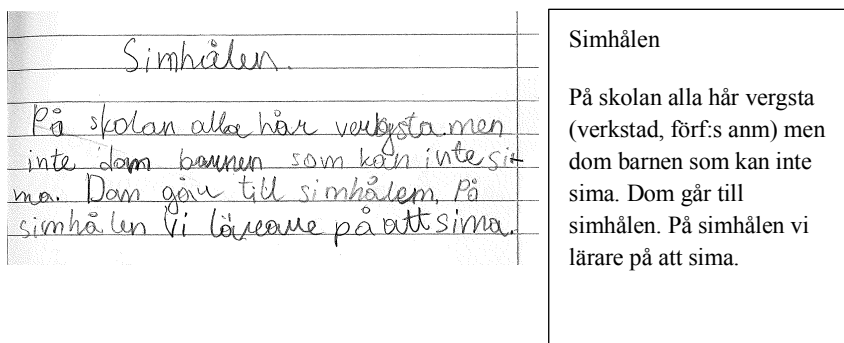 Simhålen.
På skolan alla hår vergsta men
inte dom barnen som kan inte si-
ma. Dom går till simhålem. På
simhålen vi lärare på att sima.
Simhålen
På skolan alla hår vergsta
(verkstad, förf:s anm) men
dom barnen som kan inte
sima. Dom går till
simhålen. På simhålen vi
lärare på att sima.